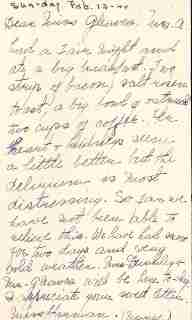 Sunday, Feb. 13-
Dear Miss Gleaves. Mrs. A
had a fair night and
ate a big breakfast. Two
strips of bacon, salt risen
toast a big bowl of oatmeal
two cups of coffee. Her
heart & kidneys seem
a little better but the
delirium is most
distressing. So far we
have not been able to
relieve this. We have had snow
for two days and very
cold weather. Mrs.
Mr. Gleaves will be here to-day
I appreciate your sweet letter.